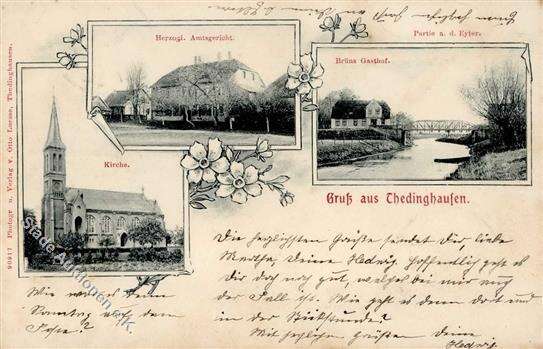 Herzogl. Amtsgericht.
Partie a. d. Eyter.
Brüns Gasthof.
Kirche.
Gruß aus Thedinghausen.
90917 Photogr. u. Verlag v. Otto Lorenz, Thedinghausen.
Die herzlichsten Grüße sendet Dir, liebe
Martha, Deine Hedwig. Hoffentlich geht es
Dir doch noch gut, welches bei mir auch
der Fall ist. Wie geht es denn dort und
in der
Mit herzlichen Grüßen Deine
Hedwig
Wie war es denn
Sonntag auf dem
Feste?